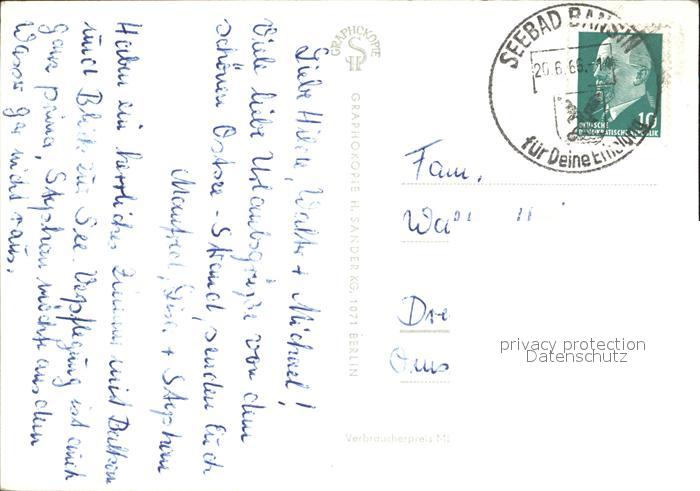 Liebe Hilde, Walter + Michael!
Viele liebe Urlaubsgrüße von dem
schönen Ostsee-Strand, senden Euch
Manfred, + Stephan
Haben ein herrliches Zimmer mit Balkon
und Blick zur See. Verpflegung ist auch
ganz prima, Stephan möchte aus dem
Wasser gar nicht raus.
GRAPHOKOPIE
GRAPHOKOPIE H. SANDER KG, 1071 BERLIN
SEEBAD BANSIN
20.6.66
für Deine
10
DEUTSCHE
DEMOKRATISCHE REPUBLIK
Fam.
Wa
Dre
privacy protection
Datenschutz
Verbraucherpreis M